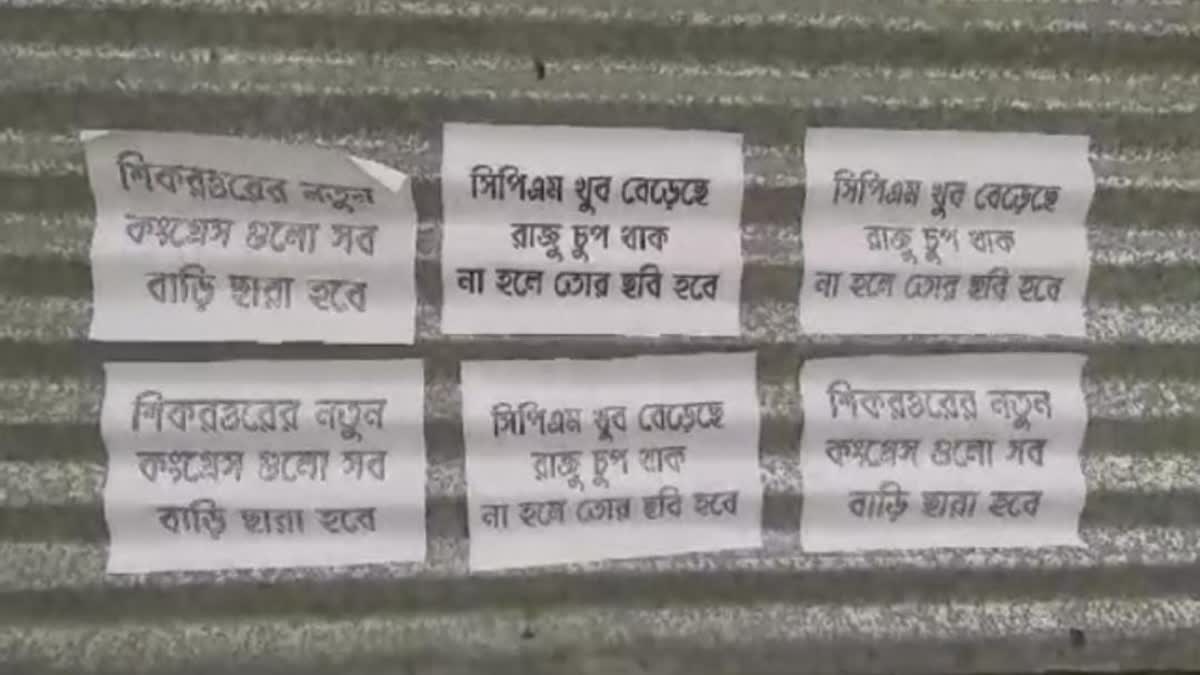 শিকরত্তরের নতুন
কংগ্রেস গুলো সব
বাড়ি ছারা হবে
সিপিএম খুব বেড়েছে
রাজু চুপ থাক
না হলে তোর ছবি হবে
সিপিএম খুব বেড়েছে
রাজু চুপ থাক
না হলে তোর ছবি হবে
শিকরত্তরের নতুন
কংগ্রেস গুলো সব
বাড়ি ছারা হবে
সিপিএম খুব বেড়েছে
রাজু চুপ থাক
না হলে তোর ছবি হবে
শিকরত্তরের নতুন
কংগ্রেস গুলো সব
বাড়ি ছারা হবে